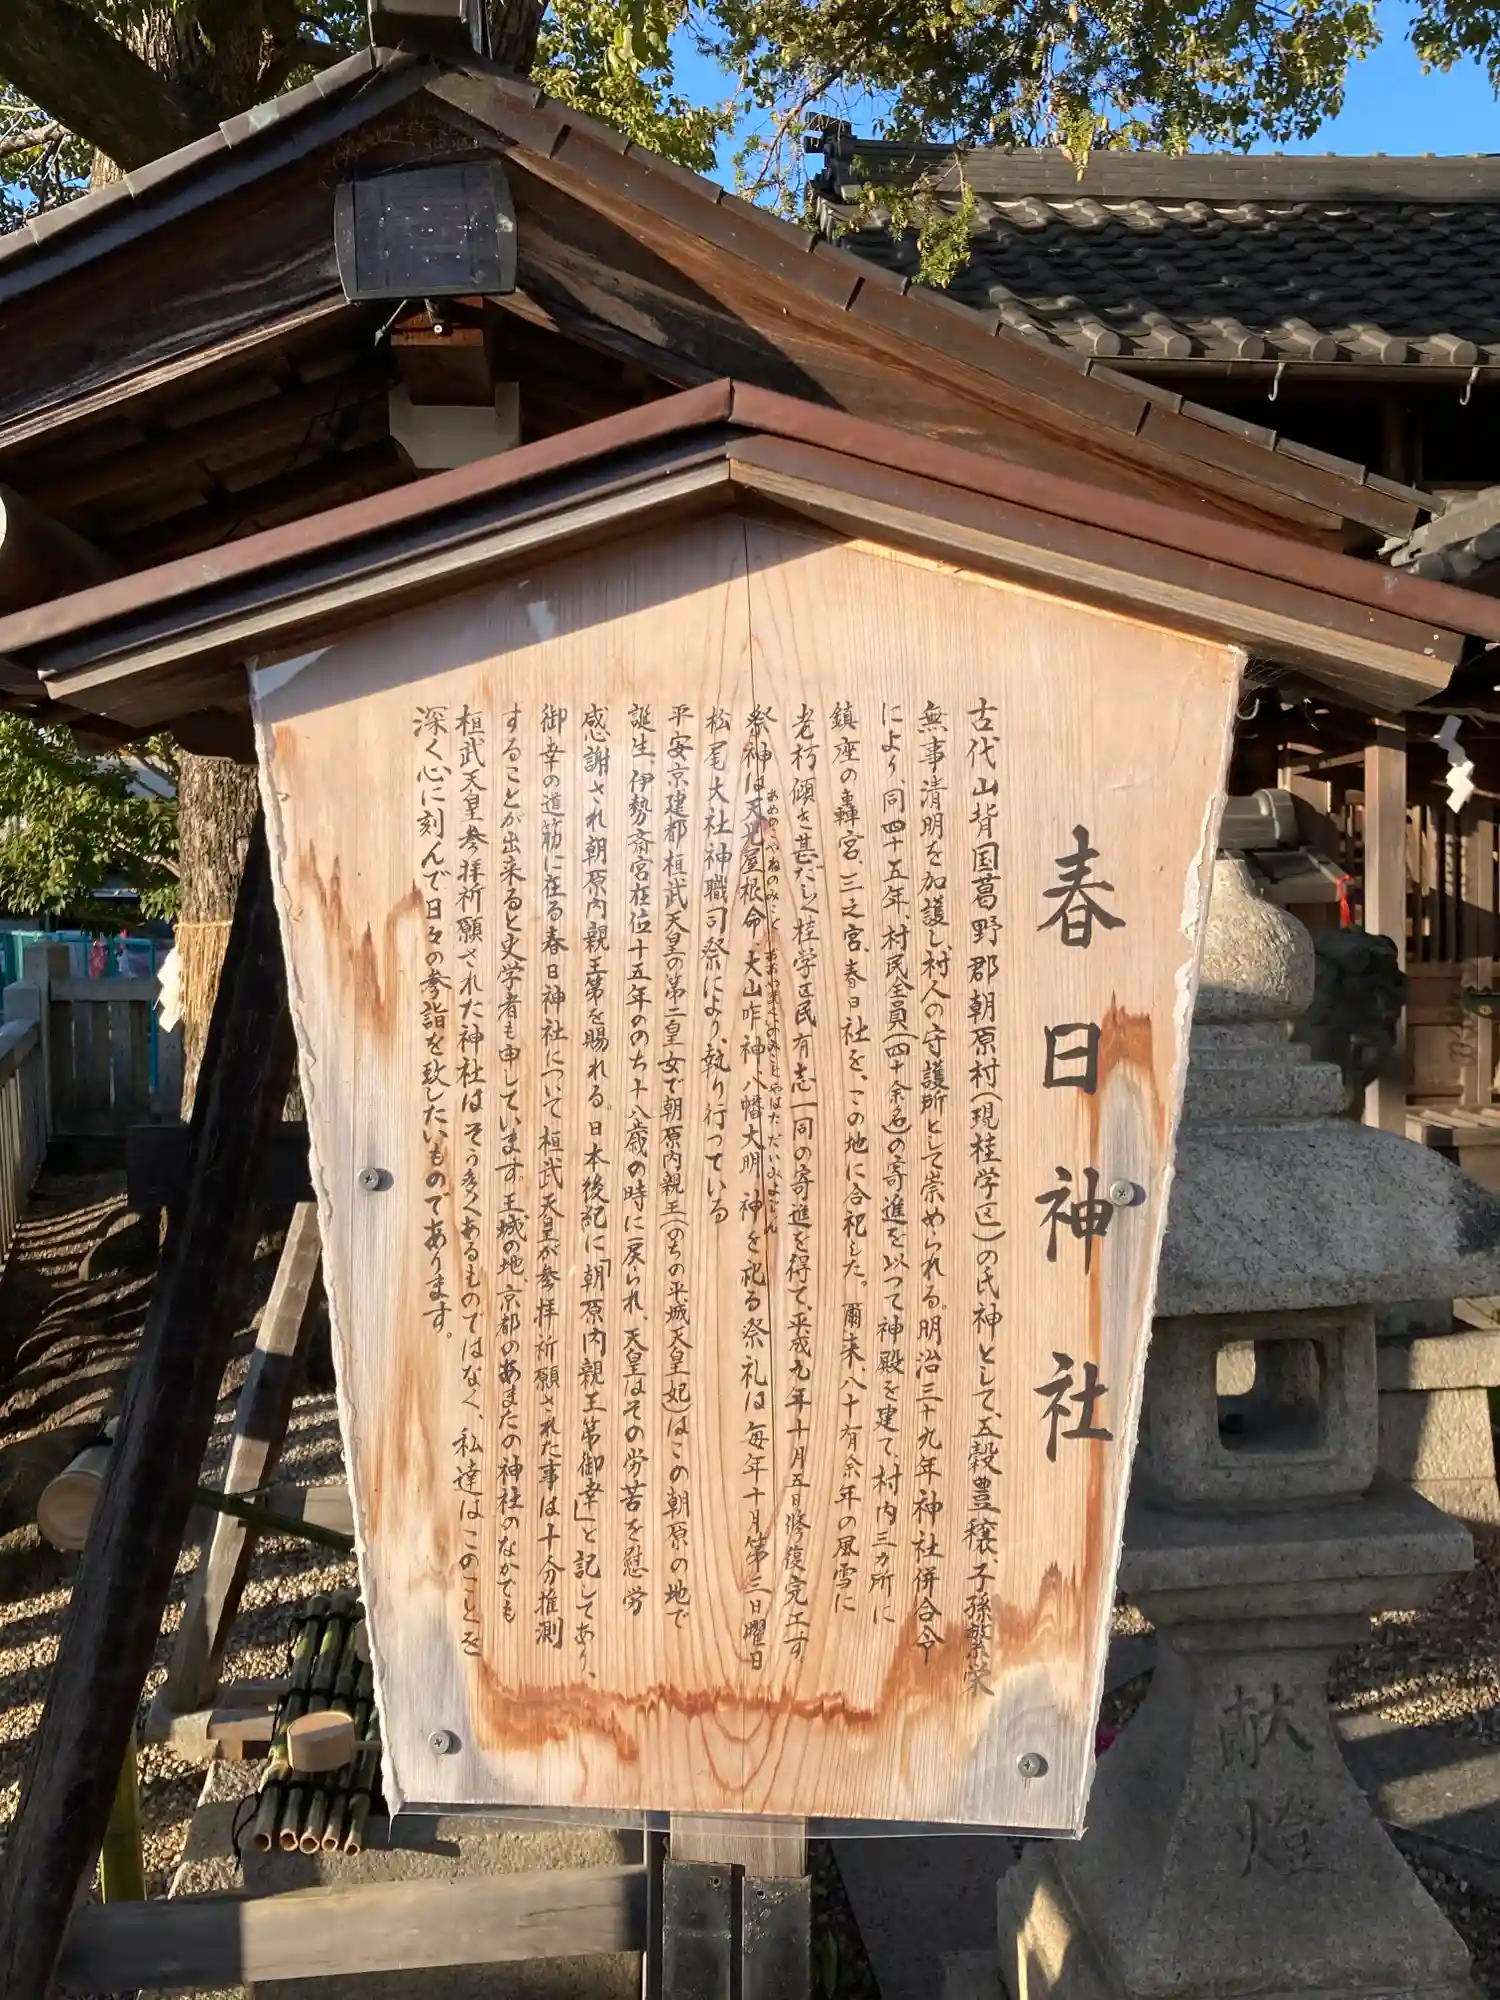 春日神社
古代山背国葛野郡朝原村(現桂学区)の氏神として、五穀豊穣、子孫繁栄
無事清明を加護し、村人の守護所として崇められる。明治三十九年神社併合令
により、同四十五年、村民全員(四十余名)の寄進を以つて神殿を建て、村内三カ所に
鎮座の轟宮、三之宮、春日社を、この地に合祀した。爾来、八十有余年の風雪に
老朽傾き甚だしく桂学区民有志一同の寄進を得て、平成九年十月五日修復完工す。
祭神は天児屋根命、大山咋神、八幡大明神を祀る祭礼は毎年十月第三日曜日
あめのこやねのみこと おおやまくいのみこと やはただいみょうじん
松尾大社神職司祭により、執り行つている
平安京建都桓武天皇の第二皇女で朝原内親王(のちの平城天皇妃)はこの朝原の地で
誕生、伊勢斎宮在位十五年ののち十八歳の時に戻られ、天皇はその労苦を慰労
感謝され朝原内親王第を賜れる。日本後紀に「朝原内親王第御幸」と記してあり、
御幸の道筋に在る春日神社について桓武天皇が参拝祈願された事は十分推測
することが出来ると史学者も申しています。王城の地、京都のあまたの神社のなかでも
桓武天皇参拝祈願された神社はそう多くあるものではなく、私達はこのことを
深く心に刻んで日々の参詣を致したいものであります。
献燈